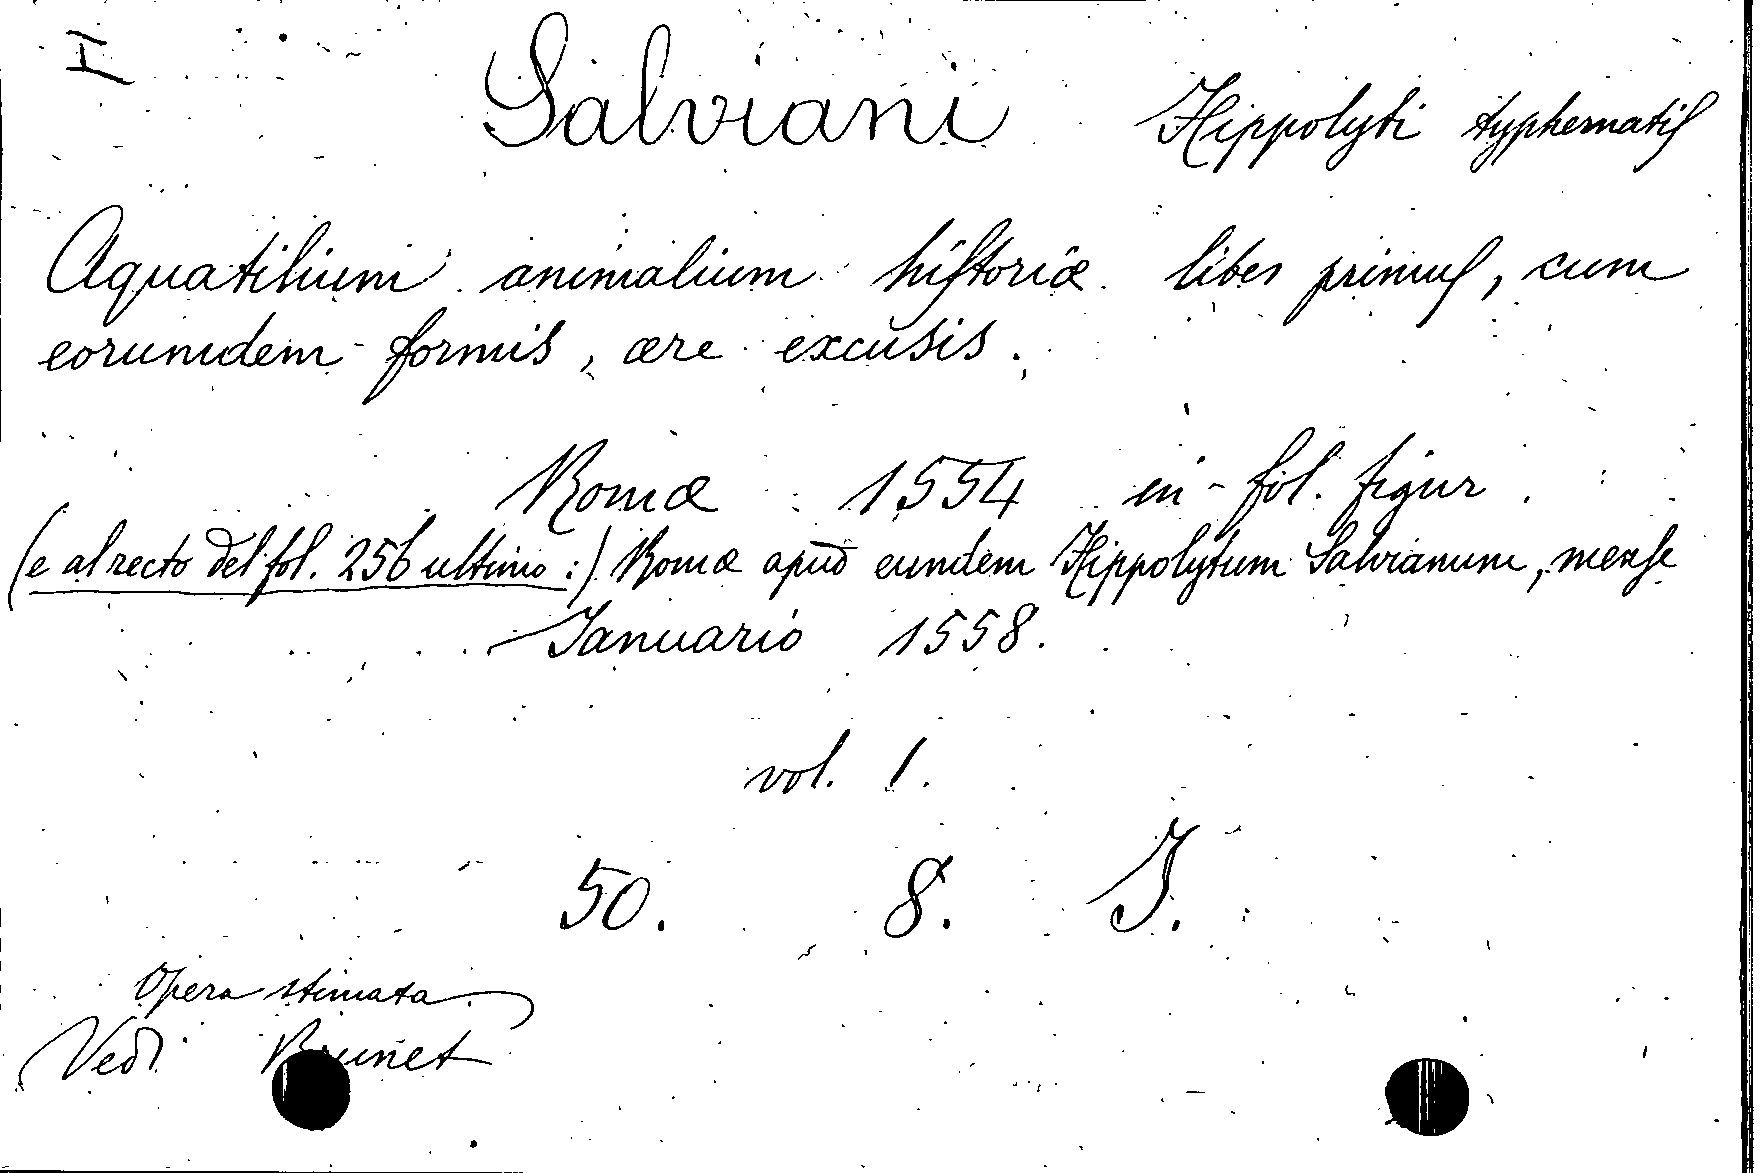 I
Salviani Hippolyti typhernatis
Aquatilium animalium historiæ liber primus, cum
eorumdem formis, ære excusis.
Romæ 1554 in-fol. figur.
(e al recto del fol. 256 ultimo:) Romæ apud eundem Hippolytum Salvianum, mense
Ianuario 1558.
vol. 1.
50. 8. I.
Opera stimata
Vedi Brunet